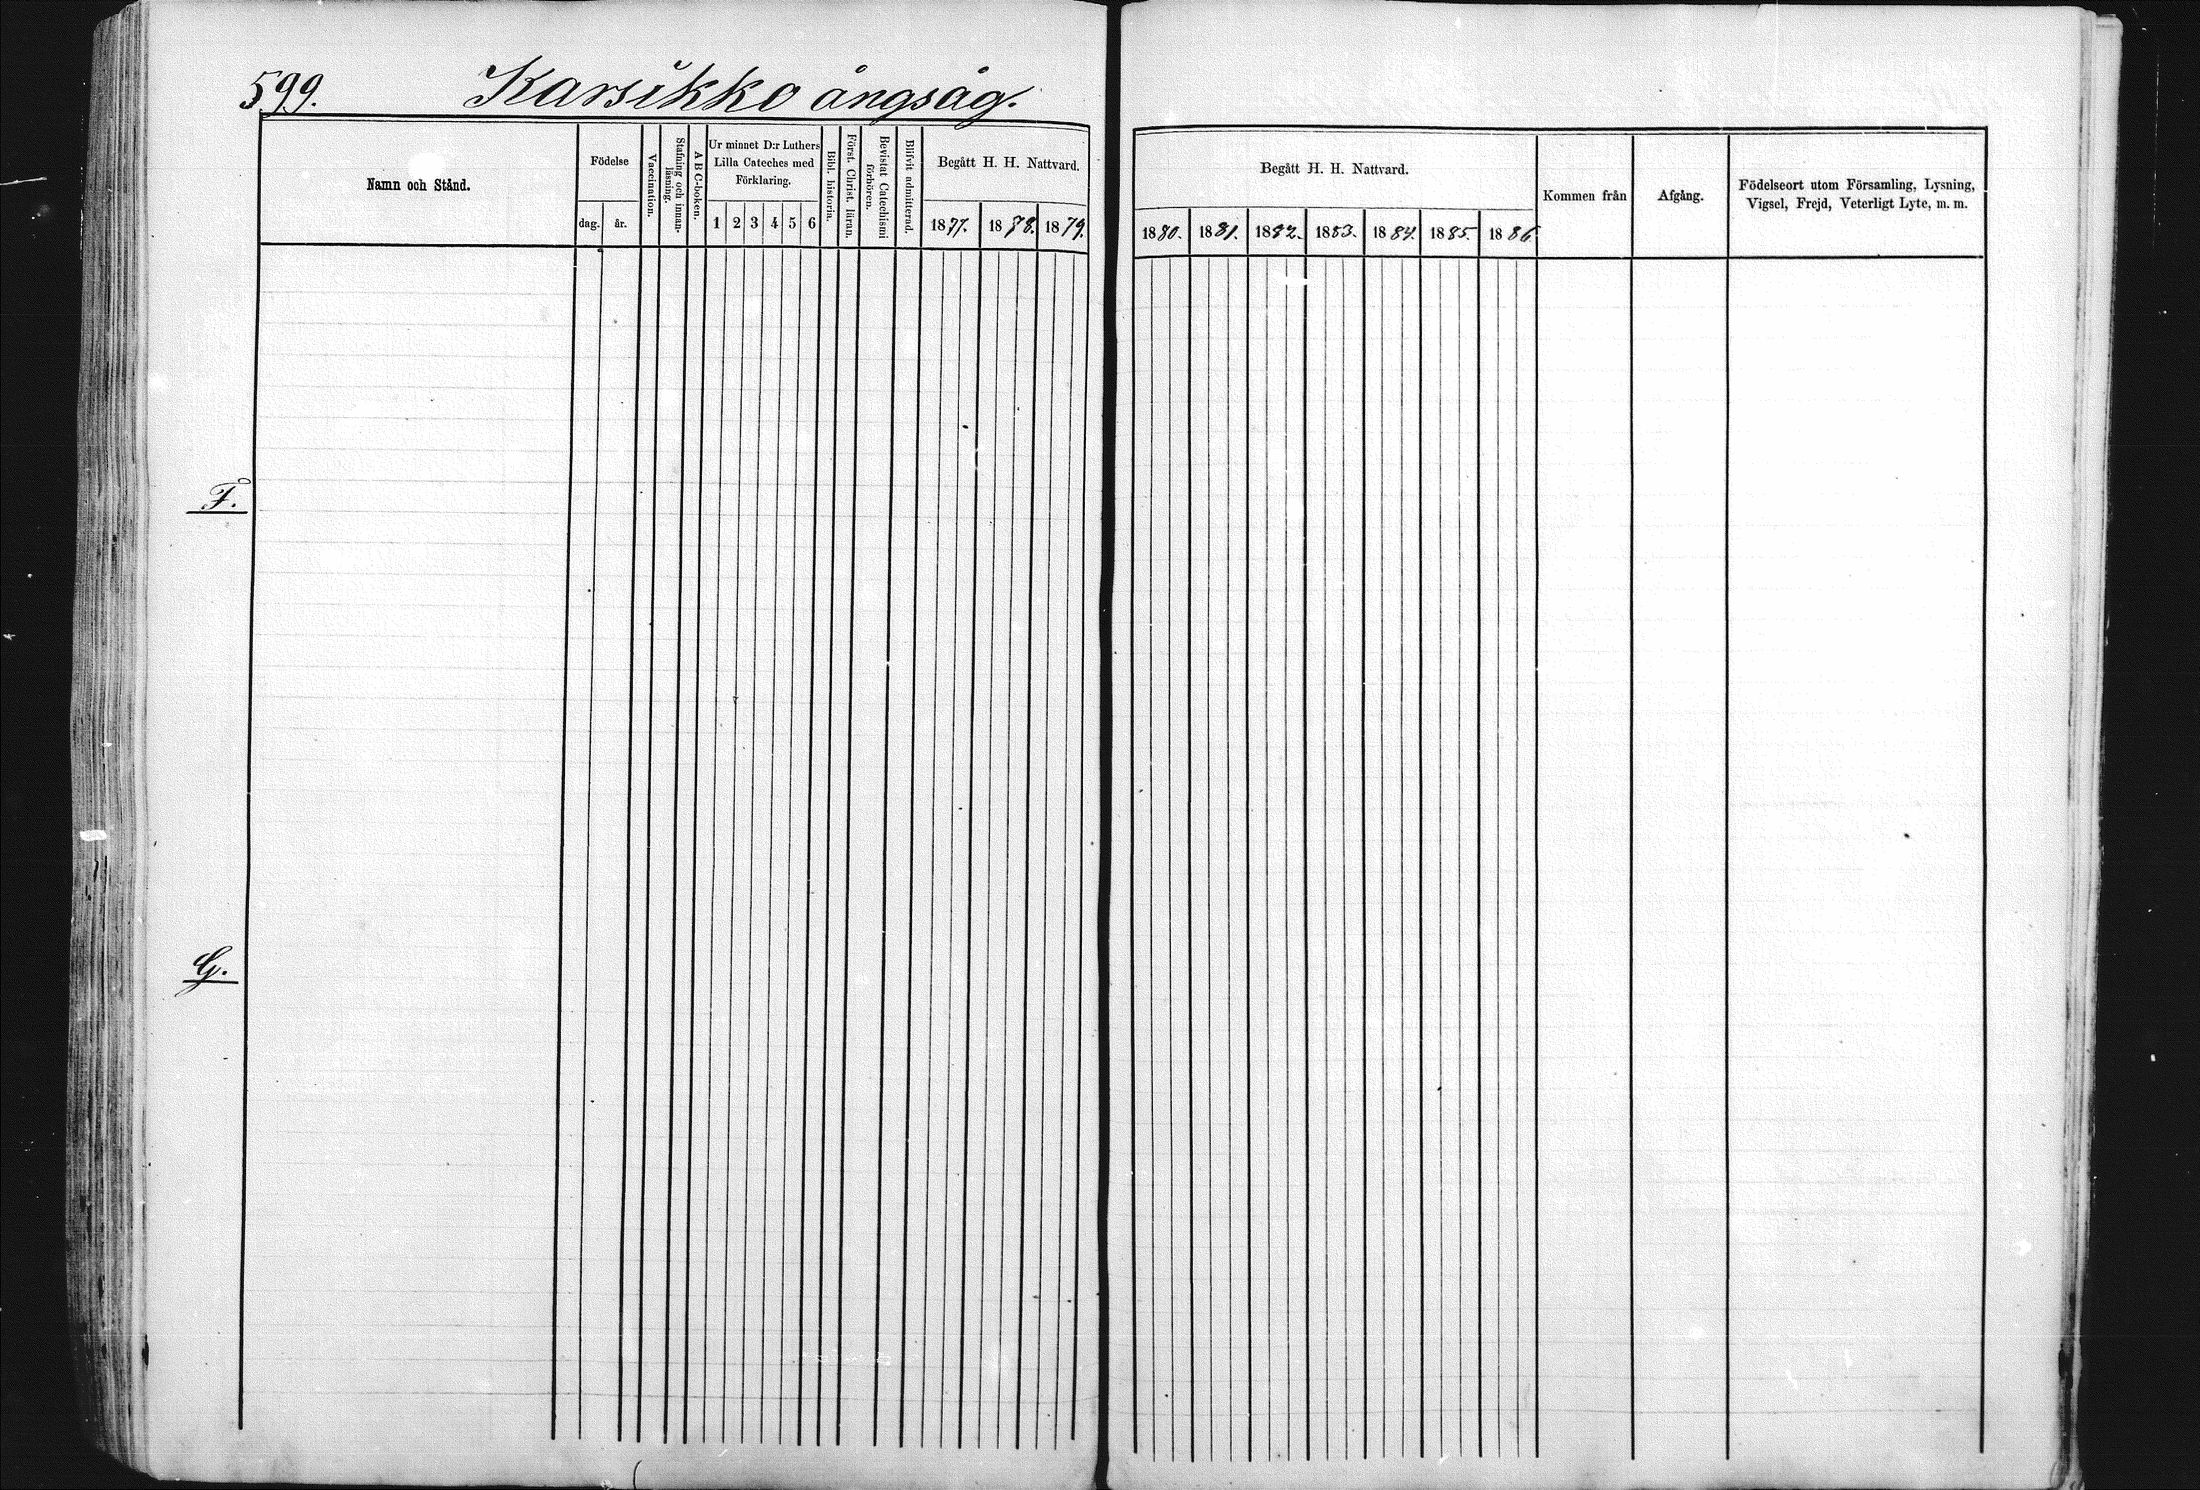 599. Karsikko ångsåg.
Namn och Stånd.
Födelse
dag. år.
Vaccination.
Stafning och innan-
läsning.
A B C-boken.
Ur minnet D:r Luthers
Lilla Cateches med
Förklaring.
1 2 3 4 5 6
Bibl. historia.
Först. Christ. läran.
Bevistat Catechismi
förhören.
Blifvit admitterad.
Begått H. H. Nattvard.
1877. 1878. 1879.
F.
G.
Begått H. H. Nattvard.
1880. 1881. 1882. 1883. 1884. 1885. 1886
Kommen från
Afgång.
Födelseort utom Församling, Lysning,
Vigsel, Frejd, Veterligt Lyte, m. m.